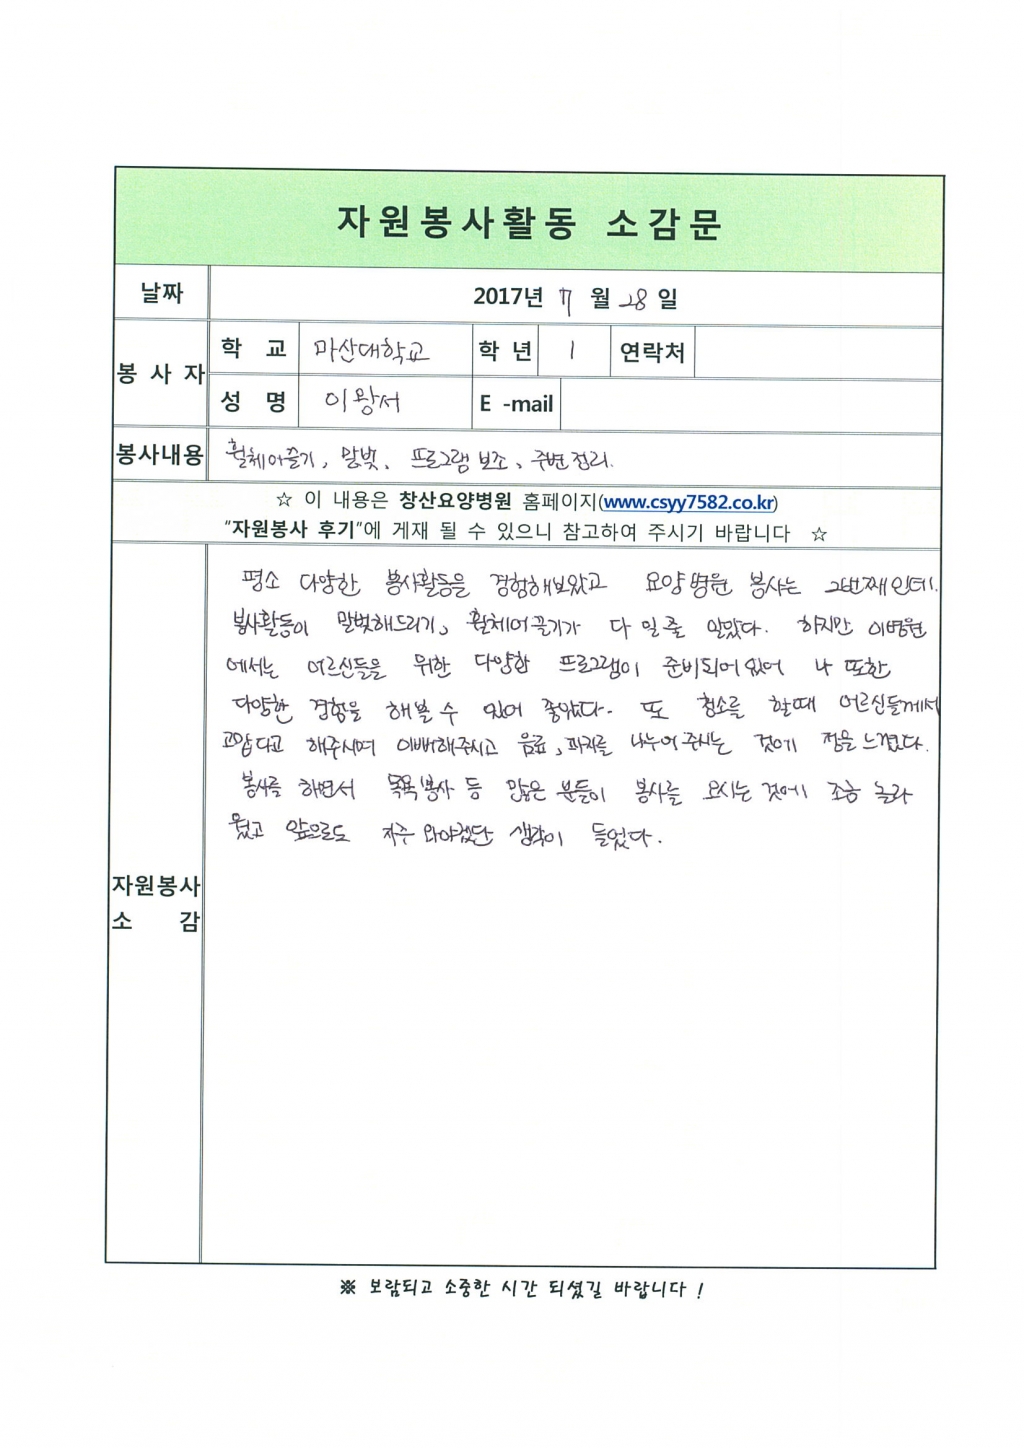 자원봉사활동 소감문
날짜 2017년 7월 28일
봉사자 학 교 마산대학교 학년 1 연락처
성 명 이왕서 E -mail
봉사내용 휠체어끌기, 말벗, 프로그램 보조, 주변정리.
☆ 이 내용은 창산요양병원 홈페이지(www.csyy7582.co.kr)
"자원봉사 후기"에 게재 될 수 있으니 참고하여 주시기 바랍니다 ☆
평소 다양한 봉사활동을 경험해보았고 요양병원 봉사는 2번째인데.
봉사활동이 말벗해드리기, 휠체어끌기가 다 일줄 알았다. 하지만 이병원
에서는 어르신들을 위한 다양한 프로그램이 준비되어있어 나 또한
다양한 경험을 해볼 수 있어 좋았다. 또 청소를 할때 어르신들께서
고맙다고 해주시며 이뻐해주시고 음료, 과자를 나누어주시는 것에 정을 느꼈다.
봉사를 하면서 목욕봉사 등 많은 분들이 봉사를 오시는 것에 조금 놀라
웠고 앞으로도 자주 와야겠단 생각이 들었다.
자원봉사
소 감
※ 보람되고 소중한 시간 되셨길 바랍니다 !